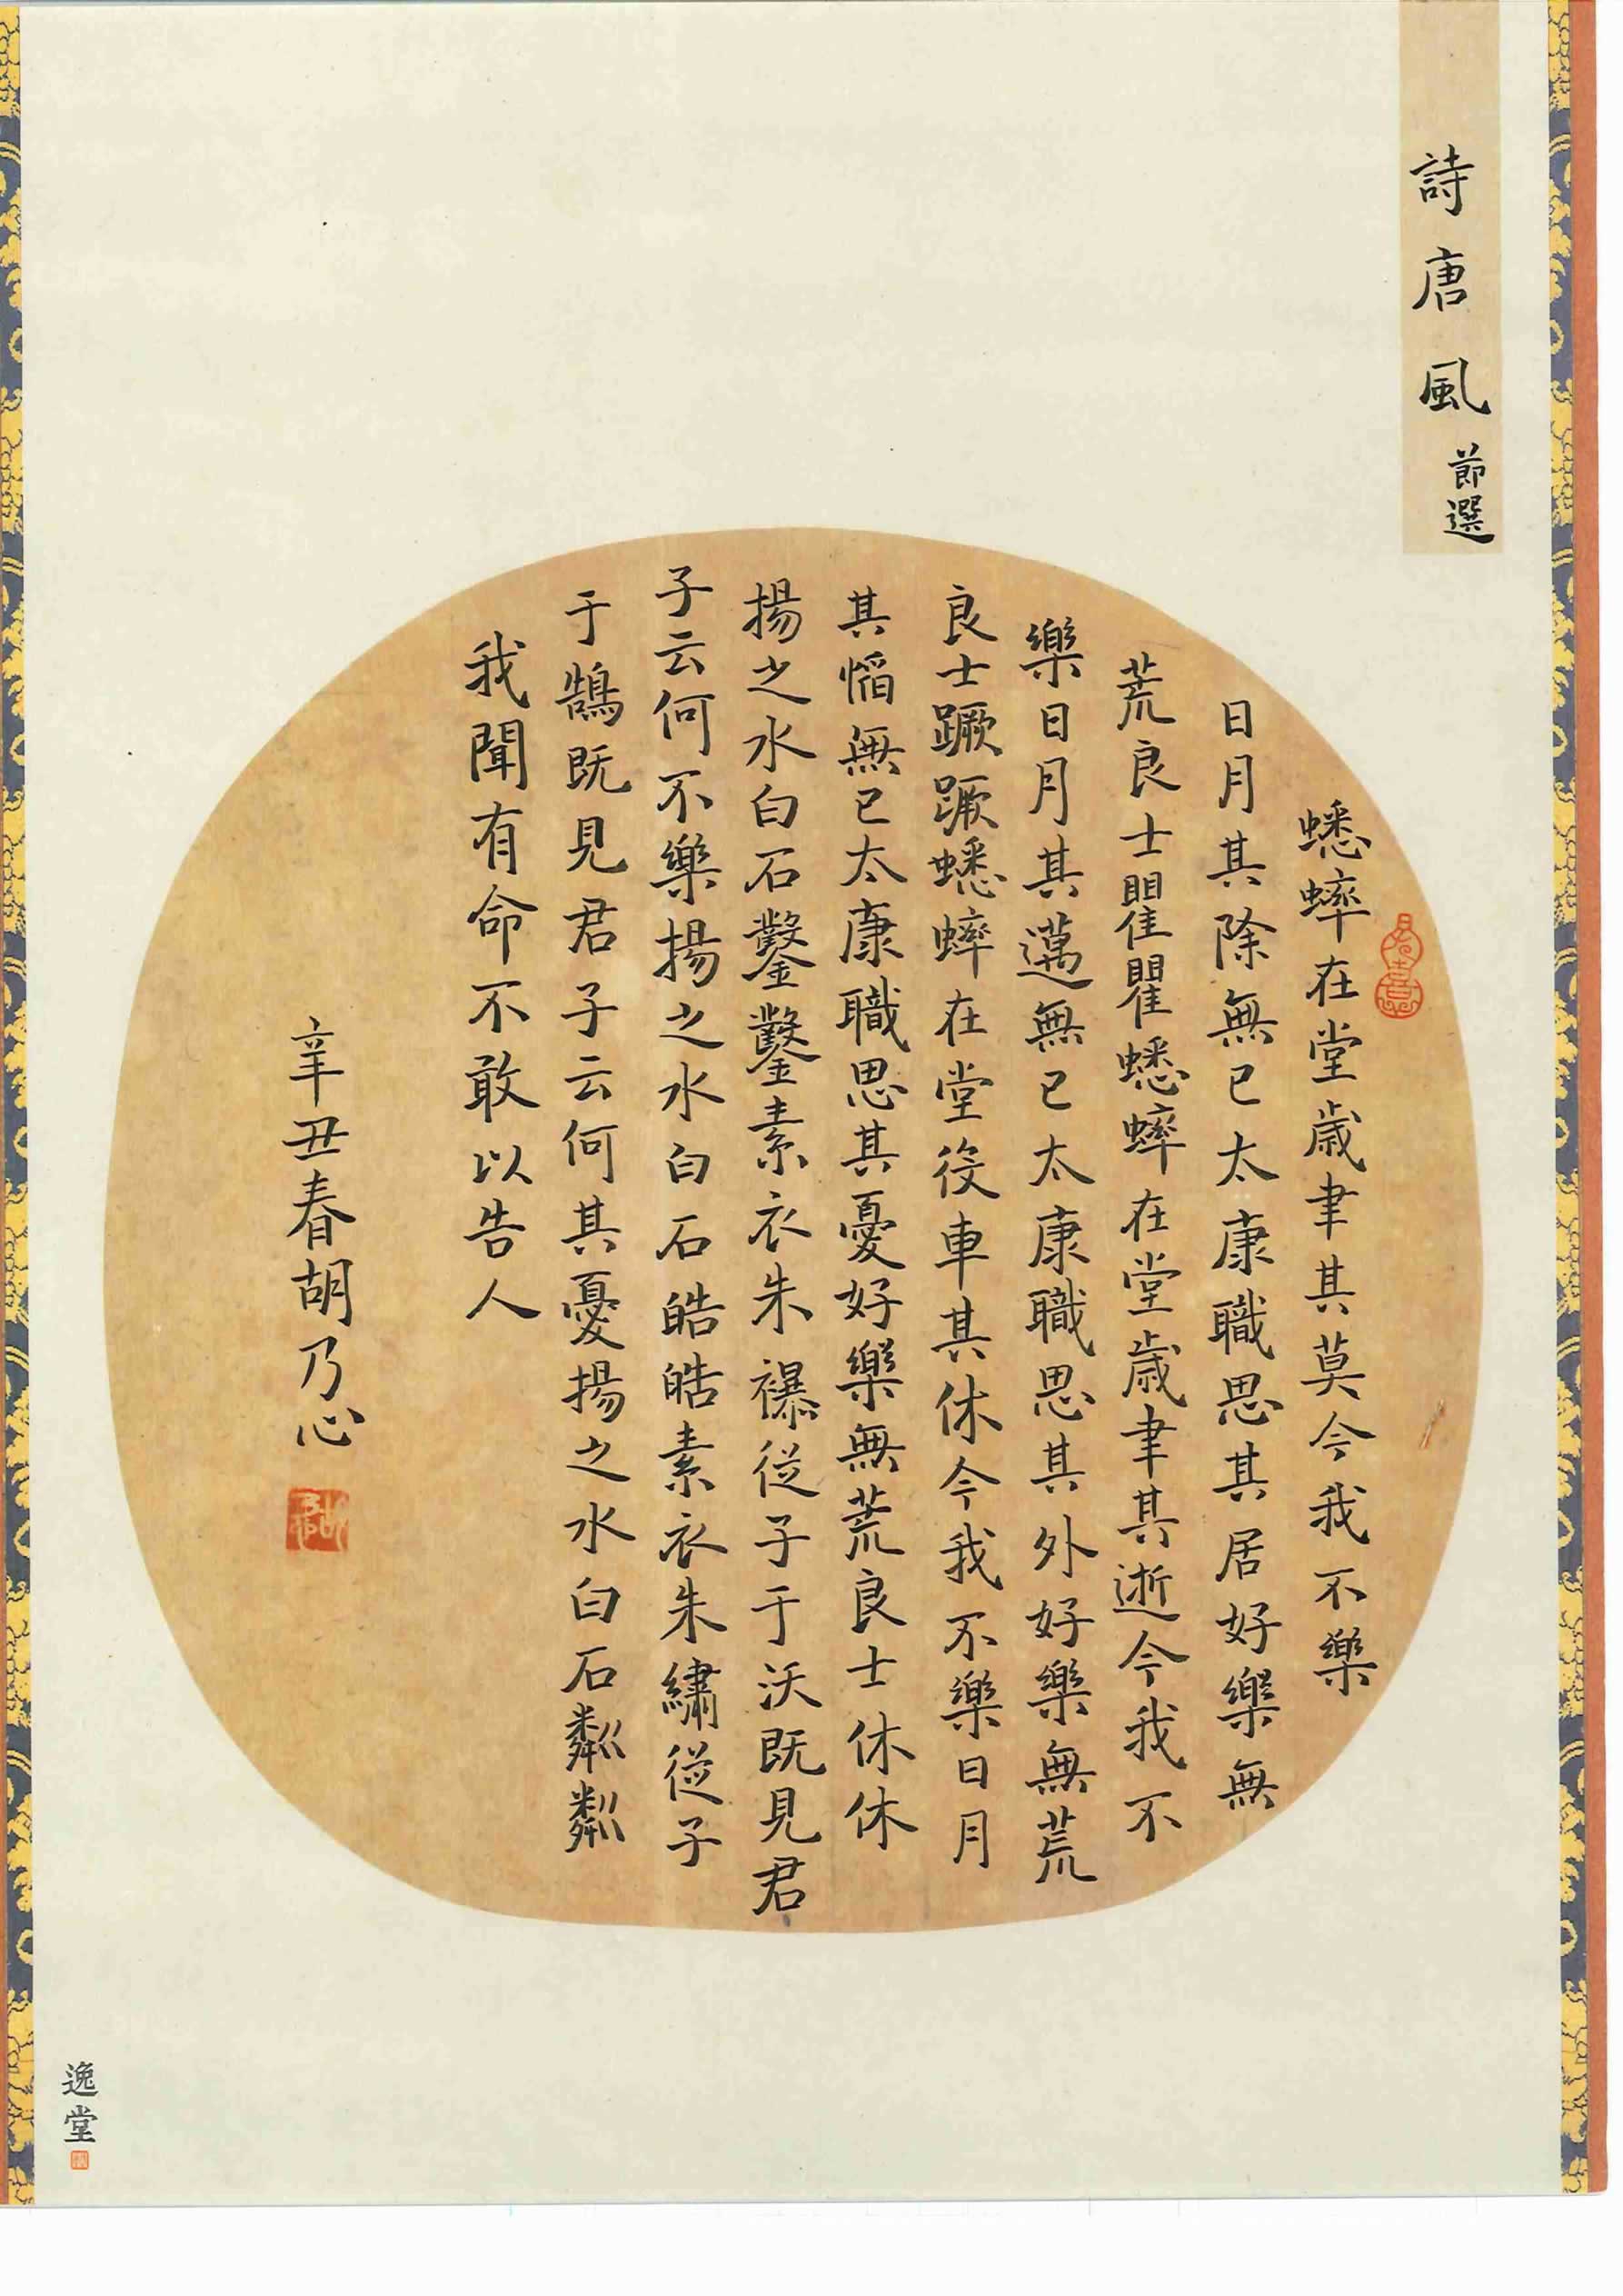 詩唐風節選
蟋蟀在堂歲聿其莫今我不樂
日月其除無已太康職思其居好樂無
荒良士瞿瞿蟋蟀在堂歲聿其逝今我不
樂日月其邁無已太康職思其外好樂無荒
良士蹶蹶蟋蟀在堂役車其休今我不樂日月
其慆無已太康職思其憂好樂無荒良士休休
揚之水白石鑿鑿素衣朱襮從子于沃既見君
子云何不樂揚之水白石皓皓素衣朱繡從子
于鵠既見君子云何其憂揚之水白石粼粼
我聞有命不敢以告人
辛丑春胡乃心
逸堂